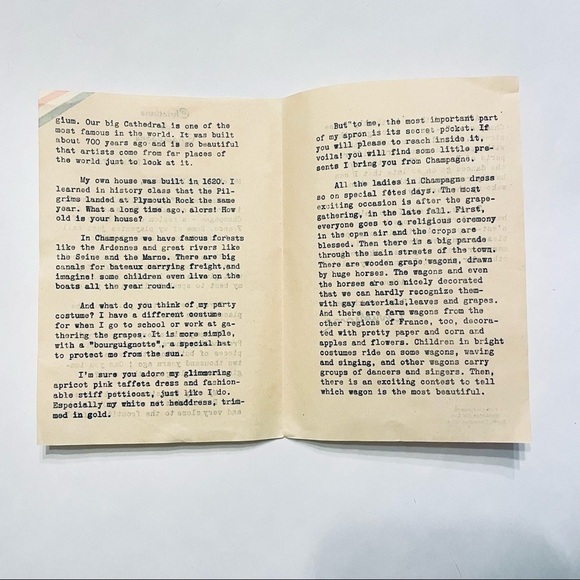 gium. Our big Cathedral is one of the
most famous in the world. It was built
about 700 years ago and is so beautiful
that artists come from far places of
the world just to look at it.
My own house was built in 1620. I
learned in history class that the Pil-
grims landed at Plymouth Rock the same
year. What a long time ago, alors! How
old is your house?
In Champagne we have famous forests
like the Ardennes and great rivers like
the Seine and the Marne. There are big
canals for bateaux carrying freight,and
imagine! some children even live on the
boats all the year round.
And what do you think of my party
costume? I have a different costume
for when I go to school or work at ga-
thering the grapes. It is more simple,
with a "bourguignotte", a special hat
to protect me from the sun.
I'm sure you adore my glimmering
apricot pink taffeta dress and fashion-
able stiff petticoat, just like I do.
Especially my white net headdress, trim-
med in gold.
But to me, the most important part
of my apron is its secret pocket. If
you will please to reach inside it,
voila! you will find some little pre-
sents I bring you from Champagne.
All the ladies in Champagne dress
so on special fêtes days. The most
exciting occasion is after the grape-
gathering, in the late fall. First,
everyone goes to a religious ceremony
in the open air and the crops are
blessed. Then there is a big parade
through the main streets of the town.
There are wooden grape wagons, drawn
by huge horses. The wagons and even
the horses are so nicely decorated
that we can hardly recognize them-
with gay materials,leaves and grapes.
And there are farm wagons from the
other regions of France, too, decora-
ted with pretty paper and corn and
apples and flowers. Children in bright
costumes ride on some wagons, waving
and singing, and other wagons carry
groups of dancers and singers. Then,
there is an exciting contest to tell
which wagon is the most beautiful.